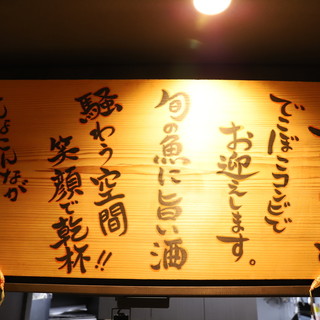 でこぼこコンビで
お迎えします。
旬の魚に旨い酒
騒わう空間
笑顔で乾杯!!
んなこんなが